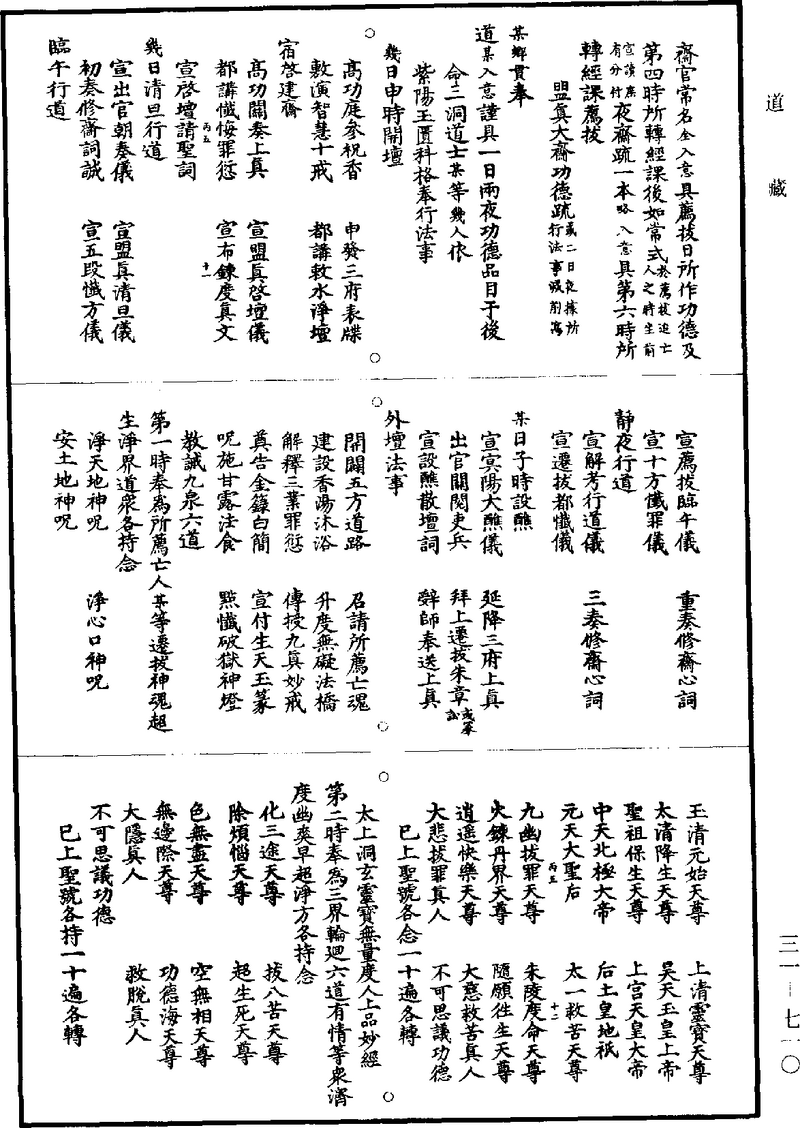 道藏
三一—七一〇
齋官常名全入意具薦拔日所作功德及
第四時所轉經課後如常式於薦拔追亡人之時生前
有分付夜齋疏一本略入意具第六時所
轉經課薦拔
盟真大齋功德疏
某鄉貫奉
道某入意謹具一日兩夜功德品目于後
命三洞道士某等幾人依
紫陽玉匱科格奉行法事
幾日申時開壇
高功庭參祝香　申發三府表牒
敷演智慧十戒　都講敕水淨壇
宿啓建齋
高功關奏上真　宣盟真啓壇儀
都講懺悔罪愆　宣布鍊度真文
宣啓壇請聖詞
丙五　十一
幾日清旦行道
宣出官朝奏儀　宣盟真清旦儀
初奏修齋詞誠　宣五段懺方儀
臨午行道
宣薦拔臨午儀　重奏修齋心詞
宣十方懺罪儀
靜夜行道
宣解考行道儀　三奏修齋心詞
宣遷拔都懺儀
某日子時設醮
宣冥陽大醮儀　延降三府上真
出官關閱吏兵　拜上遷拔朱章
宣設醮散壇詞　辭師奉送上真
外壇法事
開闢五方道路　召請所薦亡魂
建設香湯沐浴　升度無礙法橋
解釋三業罪愆　傳授九真妙戒
奠告金籙白簡　宣付生天玉篆
呪施甘露法食　點懺破獄神燈
教誡九泉六道
第一時奏為所薦亡人某等遷拔神魂超
生淨界道眾各持念
淨天地神呪　淨心口神呪
安土地神呪
玉清元始天尊　上清靈寶天尊
太清降生天尊　昊天玉皇上帝
聖祖保生天尊　上宫天皇大帝
中天北極大帝　后土皇地祇
元天大聖后　太一救苦天尊
丙五　十二
九幽拔罪天尊　朱陵度命天尊
火鍊丹界天尊　隨願往生天尊
逍遙快樂天尊　大慈救苦真人
大悲拔罪真人　不可思議功德
已上聖號各念一十遍各轉
太上洞玄靈寶無量度人上品妙經
第二時奉為三界輪迴六道有情等眾濟
度幽爽早超淨方各持念
化三途天尊　拔八苦天尊
除煩惱天尊　超生死天尊
色無盡天尊　空無相天尊
無邊際天尊　功德海天尊
大隱真人　救脫真人
不可思議功德
已上聖號各持一十遍各轉